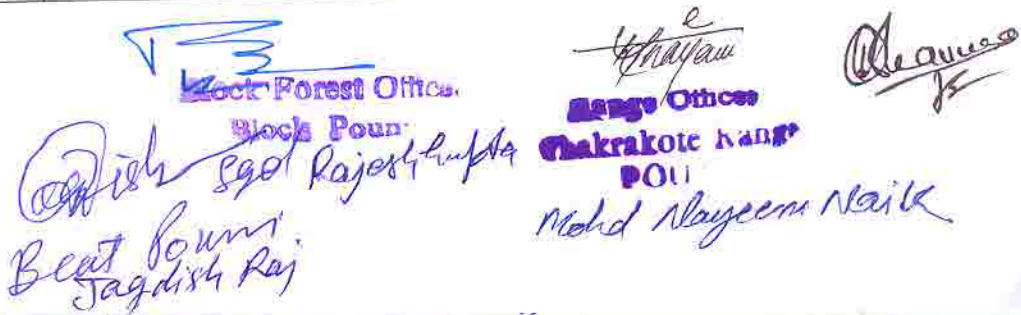 Block Forest Officer
Block Pouni
Sgd Rajesh Gupta
Beat Pouni
Jagdish Raj
Range Officer
Chakrakote Range
POU
Mohd Nayeem Naik